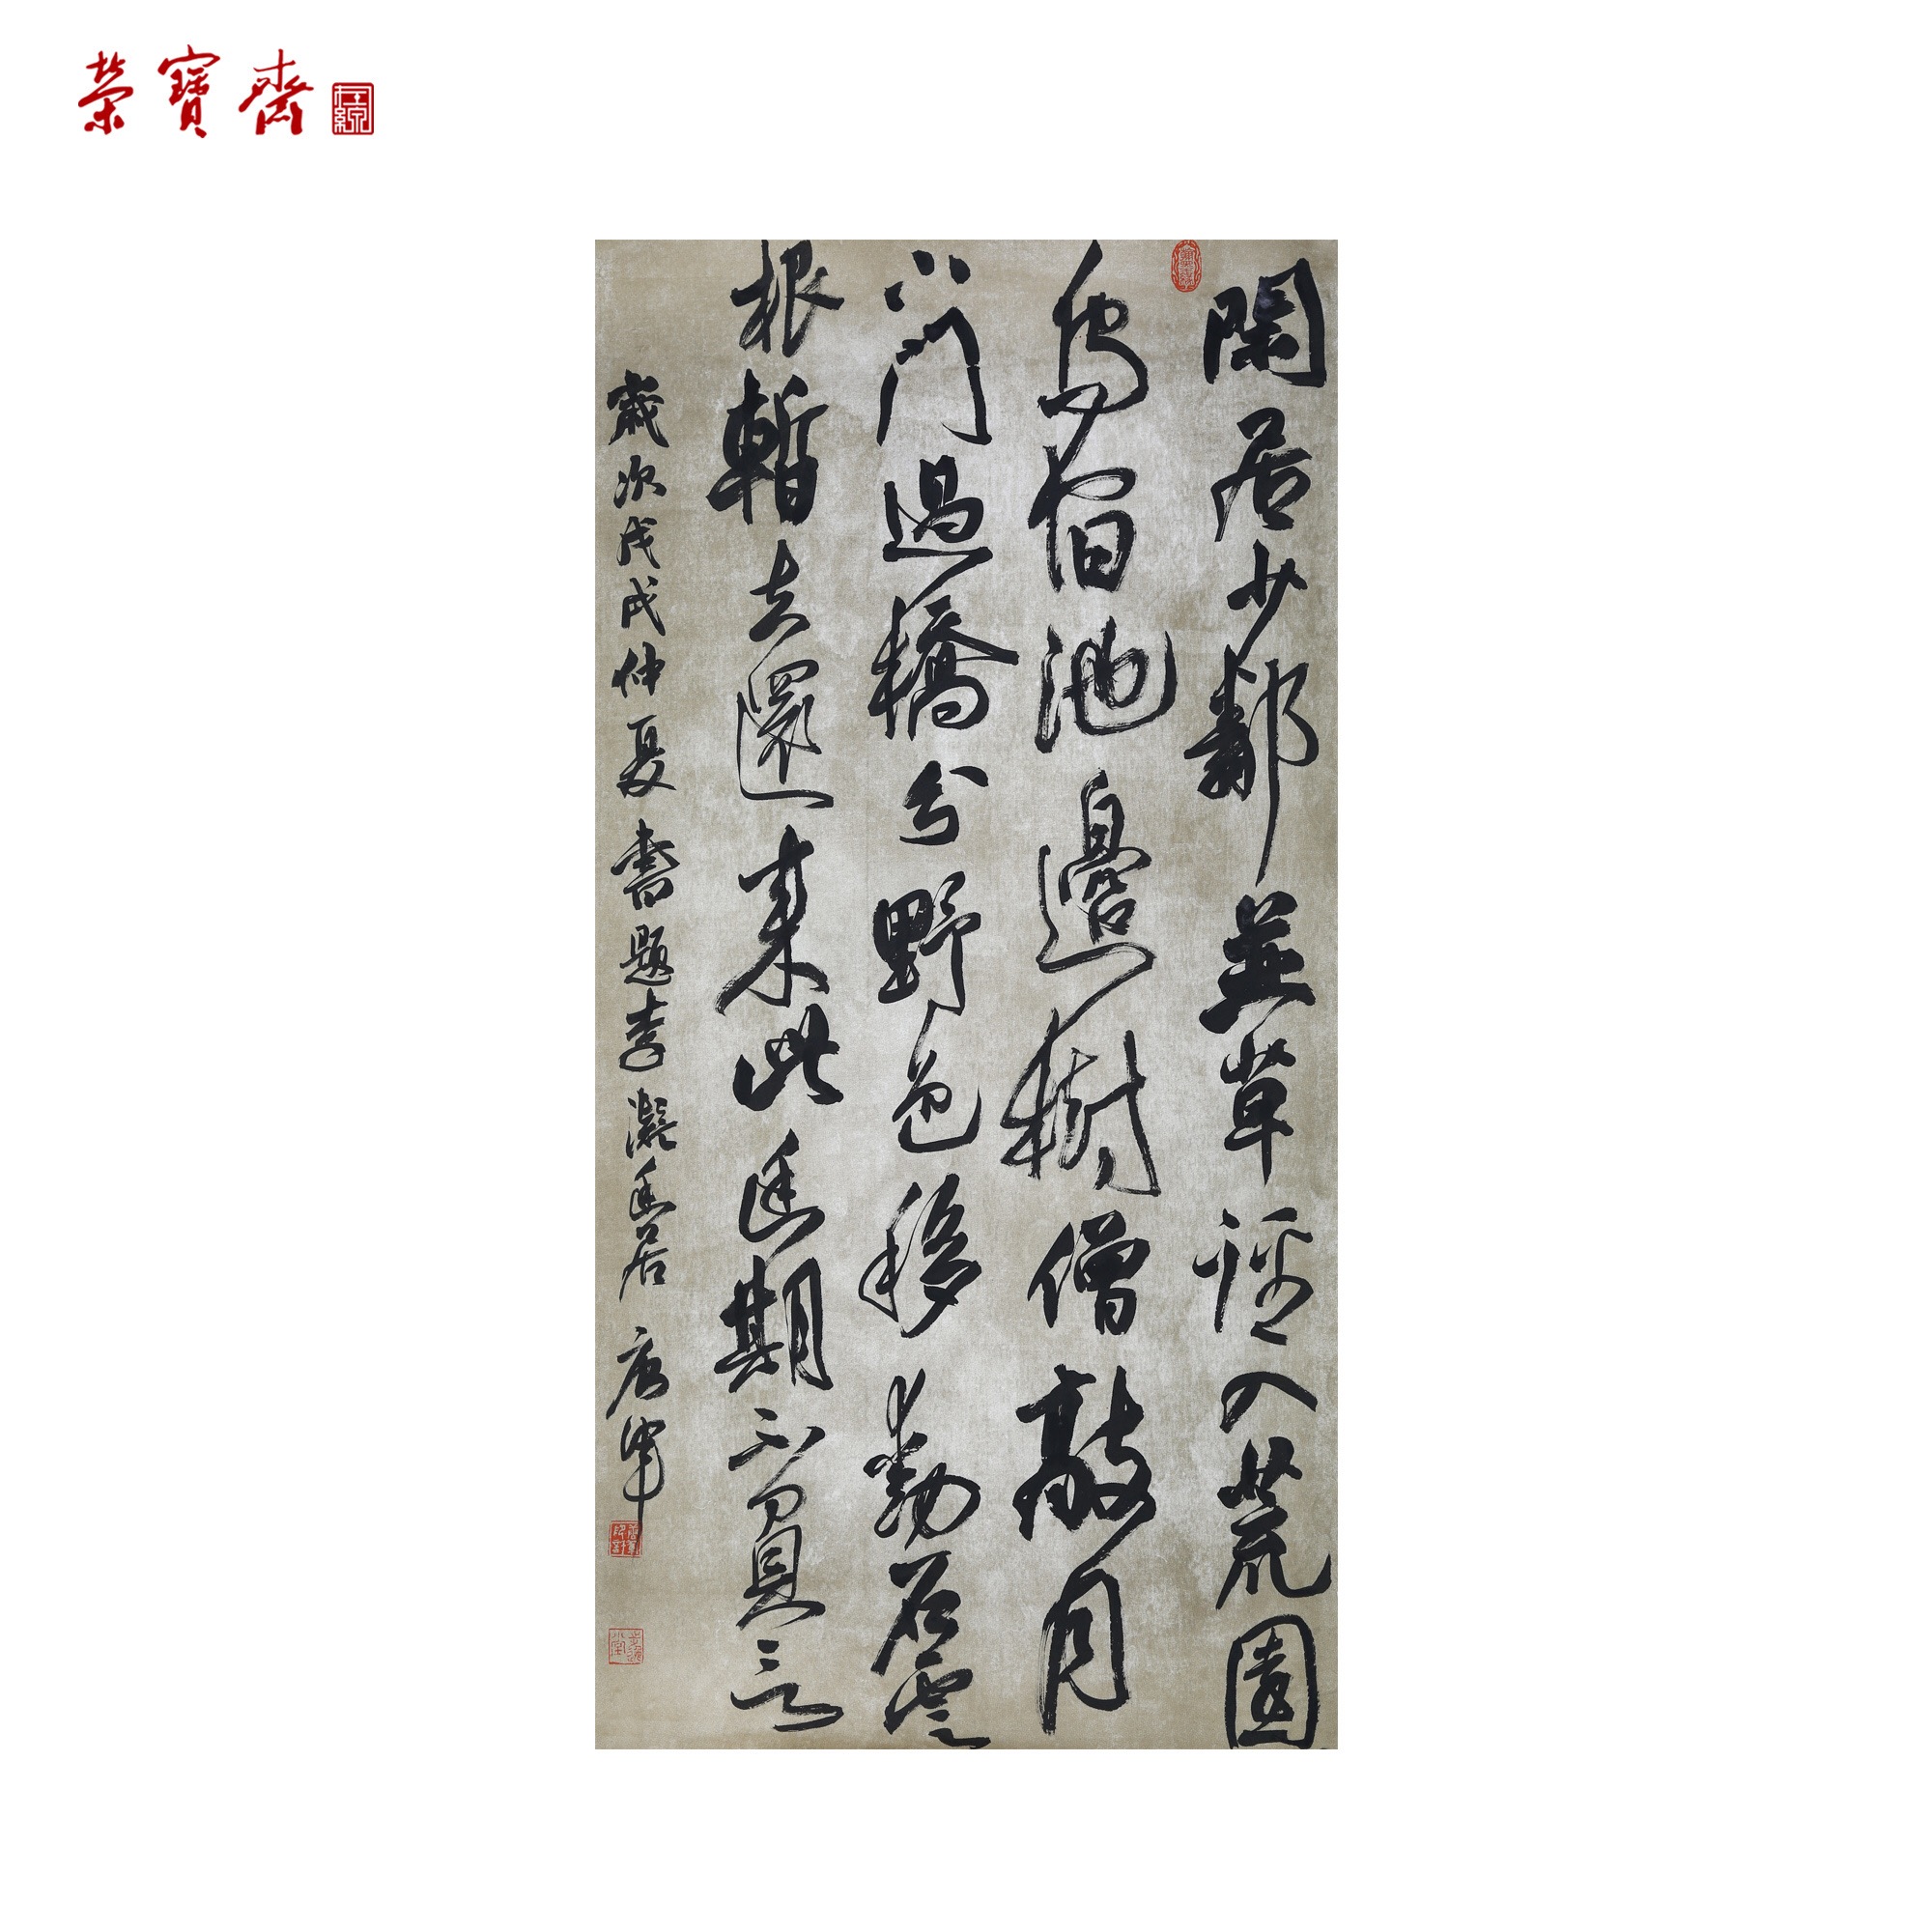 榮寶齋
在線
閑居少鄰並草徑入荒園
鳥宿池邊樹僧敲月
下門過橋分野色移動石雲
根暫去還來此幽期不負言
歲次戊戌仲夏書題李凝幽居 唐軍